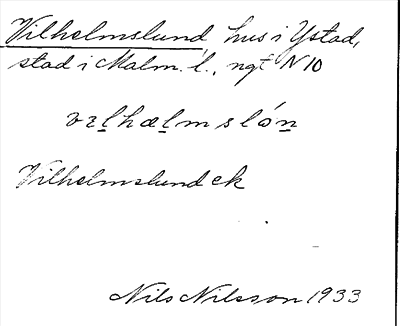 Vilhelmslund, hus i Ystad,
stad i Malm. l., ngt N 10
vɪlhælmslón
Vilhelmslund ek
Nils Nilsson 1933